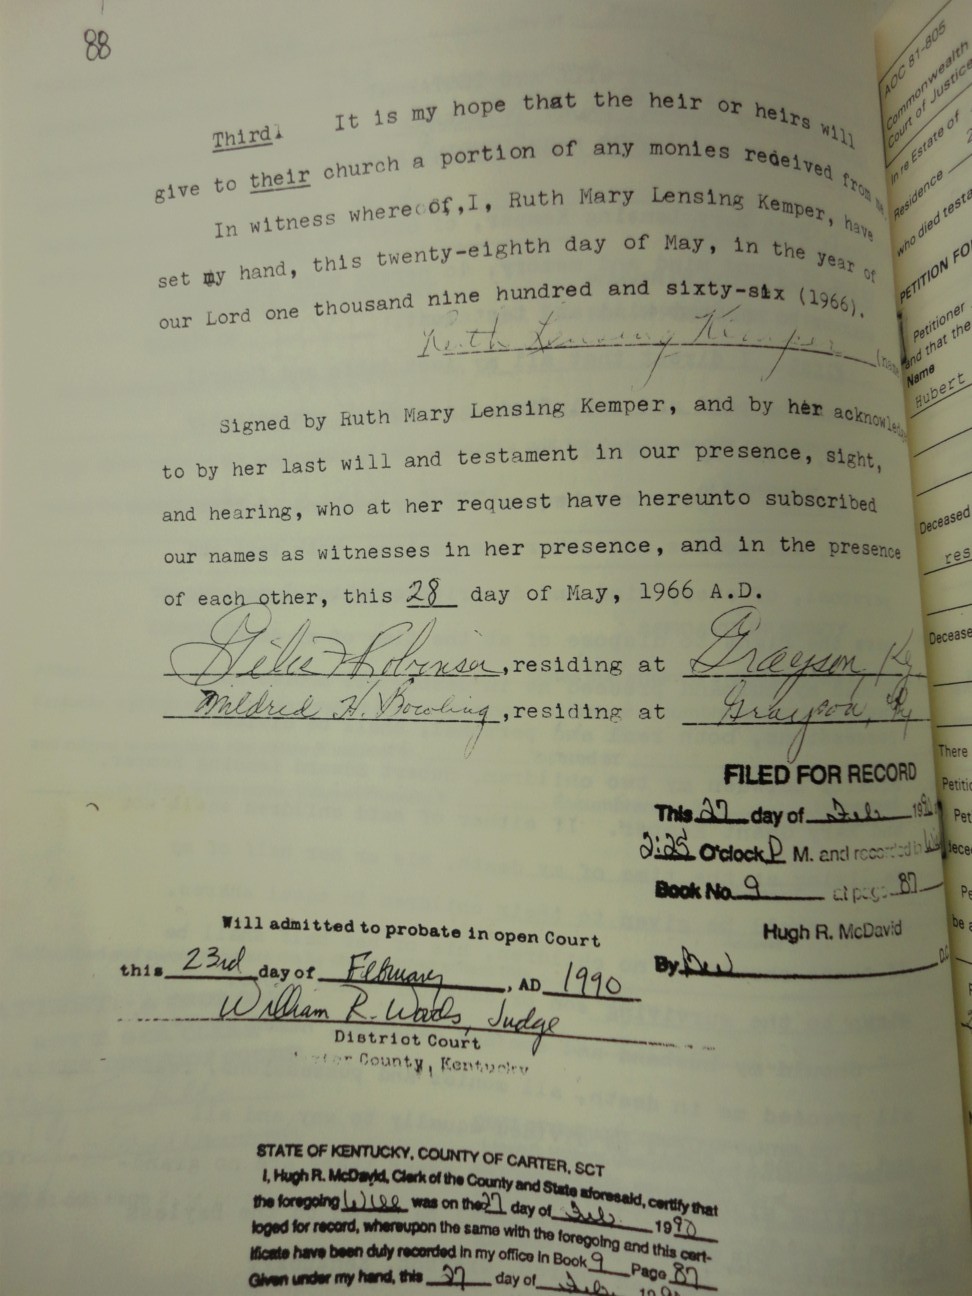 88
Third. It is my hope that the heir or heirs will
give to their church a portion of any monies redeived from me.
In witness whereof,I, Ruth Mary Lensing Kemper, have
set my hand, this twenty-eighth day of May, in the year of
our Lord one thousand nine hundred and sixty-six (1966).
Ruth Lensing Kemper
Signed by Ruth Mary Lensing Kemper, and by her acknowled
to by her last will and testament in our presence, sight,
and hearing, who at her request have hereunto subscribed
our names as witnesses in her presence, and in the presence
of each other, this 28 day of May, 1966 A.D.
Robinson,residing at Grayson, Ky.
Mildred H. Bowling,residing at Grayson, Ky
FILED FOR RECORD
This 27 day of Feb 199
2:25 O'clock P M. and recorded in
Book No. 9 at page 87
Hugh R. McDavid
By D.C.
Will admitted to probate in open Court
this 23rd day of February, AD 1990
William R. Woods, Judge
District Court
County, Kentucky
STATE OF KENTUCKY, COUNTY OF CARTER, SCT
I, Hugh R. McDavid, Clerk of the County and State aforesaid, certify that
the foregoing Will was on the 27 day of Feb 1990
loged for record, whereupon the same with the foregoing and this cert-
ificate have been duly recorded in my office in Book 9 Page 87
Given under my hand, this 27 day of Feb 19
AOC 81-805
Commonwealth
Court of Justice
In re Estate of
Residence
who died testa
PETITION FO
Petitioner
and that the
Name
Hubert
Deceased
res
Decease
There
Petitio
Pet
dece
Pe
be a